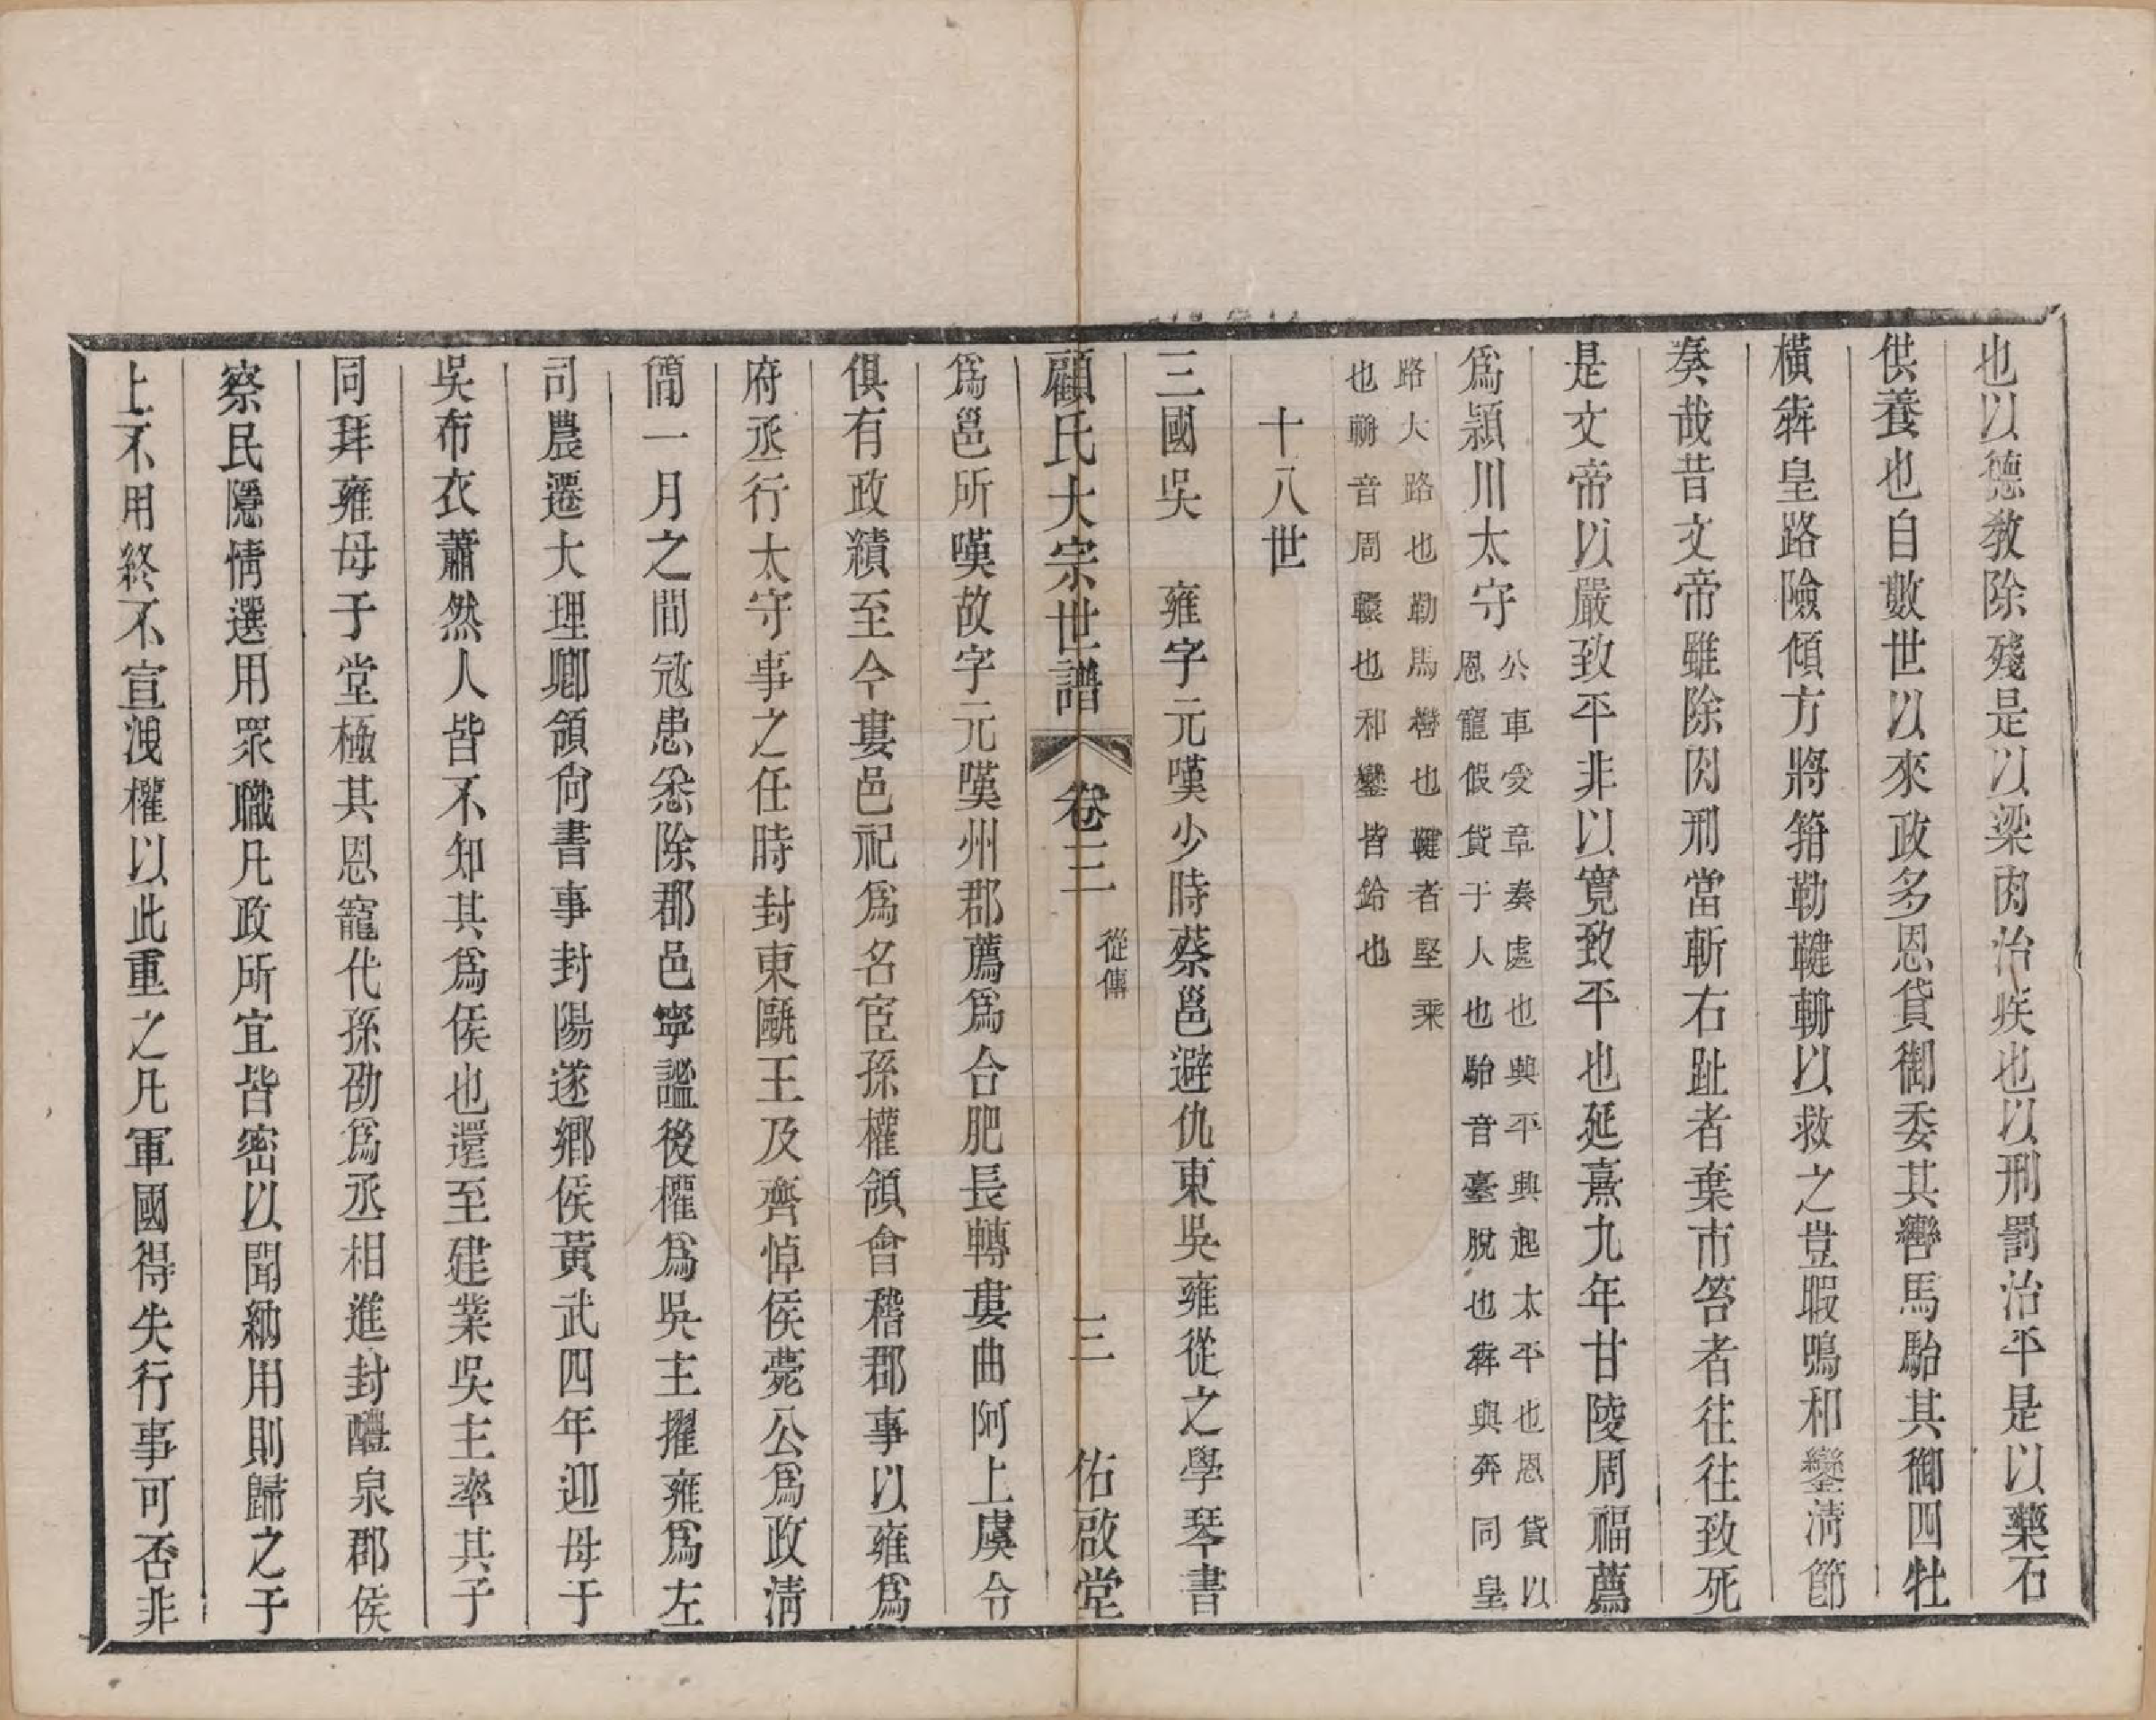 也以德教除殘是以梁肉治疾也以刑罰治平是以藥石
供養也自數世以來政多恩貸御委其轡馬駘其銜四牡
橫犇皇路險傾方將箝勒鞬輈以救之豈暇鳴和鑾淸節
奏哉昔文帝雖除肉刑當斬右趾者棄市笞者往往致死
是文帝以嚴致平非以寬致平也延熹九年甘陵周福薦
爲潁川太守
公車受章奏處也興平興起太平也恩貸以
恩寵假貸于人也駘音臺脫也犇與奔同皇
路大路也勒馬轡也鞬者堅乘
也輈音周轅也和鑾皆鈴也
十八世
三國吳　雍字元嘆少時蔡邕避仇東吳雍從之學琴書
顧氏大宗世譜　卷三　從傳　三　佑啟堂
爲邕所嘆故字元嘆州郡薦爲合肥長轉婁曲阿上虞令
俱有政績至今婁邑祀爲名宦孫權領會稽郡事以雍爲
府丞行太守事之任時封東甌王及齊悼侯薨公爲政淸
簡一月之間寇患悉除郡邑寧謐後權爲吳主擢雍爲左
司農遷大理卿領尙書事封陽遂鄉侯黃武四年迎母于
吳布衣蕭然人皆不知其爲侯也還至建業吳主率其子
同拜雍母于堂極其恩寵代孫劭爲丞相進封醴泉郡侯
察民隱情選用眾職凡政所宜皆密以聞納用則歸之于
上不用終不宣洩權以此重之凡軍國得失行事可否非